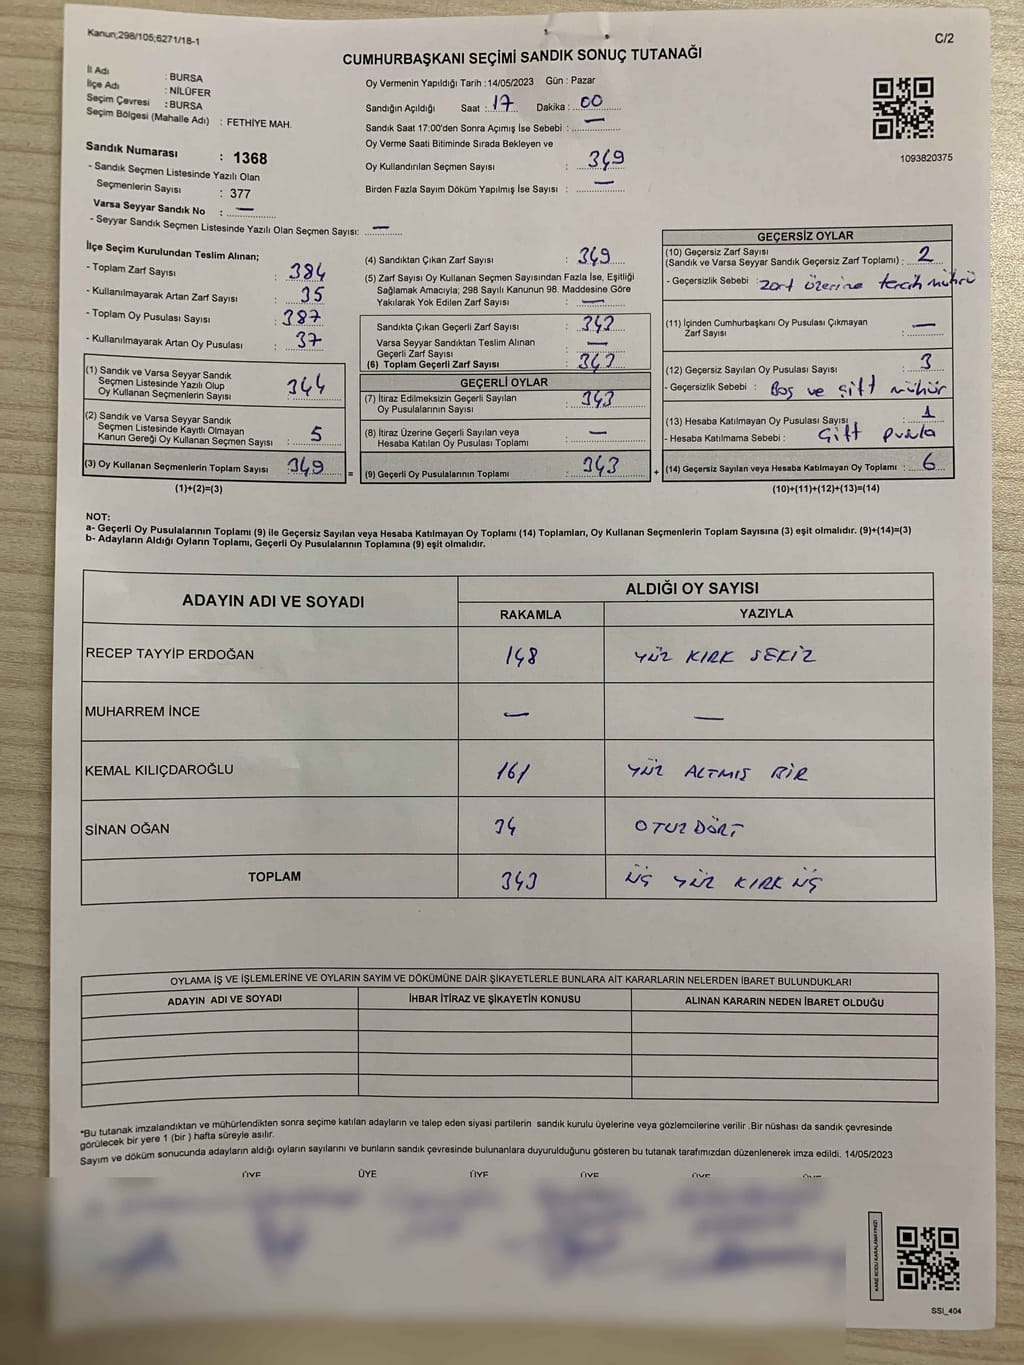 Kanun;298/105;6271/18-1
C/2
CUMHURBAŞKANI SEÇİMİ SANDIK SONUÇ TUTANAĞI
İl Adı : BURSA
İlçe Adı : NİLÜFER
Seçim Çevresi : BURSA
Seçim Bölgesi (Mahalle Adı) : FETHİYE MAH.
Oy Vermenin Yapıldığı Tarih : 14/05/2023 Gün : Pazar
Sandığın Açıldığı Saat : 17 Dakika : 00
Sandık Saat 17:00'den Sonra Açımış İse Sebebi : —
Oy Verme Saati Bitiminde Sırada Bekleyen ve
Oy Kullandırılan Seçmen Sayısı : 349
Birden Fazla Sayım Döküm Yapılmış İse Sayısı : —
1093820375
Sandık Numarası : 1368
- Sandık Seçmen Listesinde Yazılı Olan
Seçmenlerin Sayısı : 377
Varsa Seyyar Sandık No : —
- Seyyar Sandık Seçmen Listesinde Yazılı Olan Seçmen Sayısı: —
İlçe Seçim Kurulundan Teslim Alınan;
- Toplam Zarf Sayısı : 384
- Kullanılmayarak Artan Zarf Sayısı : 35
- Toplam Oy Pusulası Sayısı : 387
- Kullanılmayarak Artan Oy Pusulası : 37
(1) Sandık ve Varsa Seyyar Sandık
Seçmen Listesinde Yazılı Olup
Oy Kullanan Seçmenlerin Sayısı : 344
(2) Sandık ve Varsa Seyyar Sandık
Seçmen Listesinde Kayıtlı Olmayan
Kanun Gereği Oy Kullanan Seçmen Sayısı : 5
(3) Oy Kullanan Seçmenlerin Toplam Sayısı : 349 =
(1)+(2)=(3)
(4) Sandıktan Çıkan Zarf Sayısı : 349
(5) Zarf Sayısı Oy Kullanan Seçmen Sayısından Fazla İse, Eşitliği
Sağlamak Amacıyla; 298 Sayılı Kanunun 98. Maddesine Göre
Yakılarak Yok Edilen Zarf Sayısı : —
Sandıkta Çıkan Geçerli Zarf Sayısı : 347
Varsa Seyyar Sandıktan Teslim Alınan
Geçerli Zarf Sayısı : —
(6) Toplam Geçerli Zarf Sayısı : 347
GEÇERLİ OYLAR
(7) İtiraz Edilmeksizin Geçerli Sayılan
Oy Pusulalarının Sayısı : 343
(8) İtiraz Üzerine Geçerli Sayılan veya
Hesaba Katılan Oy Pusulası Toplamı : —
(9) Geçerli Oy Pusulalarının Toplamı : 343 +
GEÇERSİZ OYLAR
(10) Geçersiz Zarf Sayısı
(Sandık ve Varsa Seyyar Sandık Geçersiz Zarf Toplamı) : 2
- Geçersizlik Sebebi : zarf üzerine tercih mührü
(11) İçinden Cumhurbaşkanı Oy Pusulası Çıkmayan
Zarf Sayısı : —
(12) Geçersiz Sayılan Oy Pusulası Sayısı : 3
- Geçersizlik Sebebi : Boş ve çift mühür
(13) Hesaba Katılmayan Oy Pusulası Sayısı : 1
- Hesaba Katılmama Sebebi : Çift pusula
(14) Geçersiz Sayılan veya Hesaba Katılmayan Oy Toplamı : 6
(10)+(11)+(12)+(13)=(14)
NOT:
a- Geçerli Oy Pusulalarının Toplamı (9) ile Geçersiz Sayılan veya Hesaba Katılmayan Oy Toplamı (14) Toplamları, Oy Kullanan Seçmenlerin Toplam Sayısına (3) eşit olmalıdır. (9)+(14)=(3)
b- Adayların Aldığı Oyların Toplamı, Geçerli Oy Pusulalarının Toplamına (9) eşit olmalıdır.
ADAYIN ADI VE SOYADI
ALDIĞI OY SAYISI
RAKAMLA YAZIYLA
RECEP TAYYİP ERDOĞAN 148 YÜZ KIRK SEKİZ
MUHARREM İNCE — —
KEMAL KILIÇDAROĞLU 161 YÜZ ALTMIŞ BİR
SİNAN OĞAN 34 OTUZ DÖRT
TOPLAM 343 ÜÇ YÜZ KIRK ÜÇ
OYLAMA İŞ VE İŞLEMLERİNE VE OYLARIN SAYIM VE DÖKÜMÜNE DAİR ŞİKAYETLERLE BUNLARA AİT KARARLARIN NELERDEN İBARET BULUNDUKLARI
ADAYIN ADI VE SOYADI İHBAR İTİRAZ VE ŞİKAYETİN KONUSU ALINAN KARARIN NEDEN İBARET OLDUĞU
*Bu tutanak imzalandıktan ve mühürlendikten sonra seçime katılan adayların ve talep eden siyasi partilerin sandık kurulu üyelerine veya gözlemcilerine verilir .Bir nüshası da sandık çevresinde
görülecek bir yere 1 (bir ) hafta süreyle asılır.
Sayım ve döküm sonucunda adayların aldığı oyların sayılarını ve bunların sandık çevresinde bulunanlara duyurulduğunu gösteren bu tutanak tarafımızdan düzenlenerek imza edildi. 14/05/2023
ÜYE ÜYE ÜYE ÜYE ÜYE
KARE KODU KARALAMAYINIZ!
SSI_404